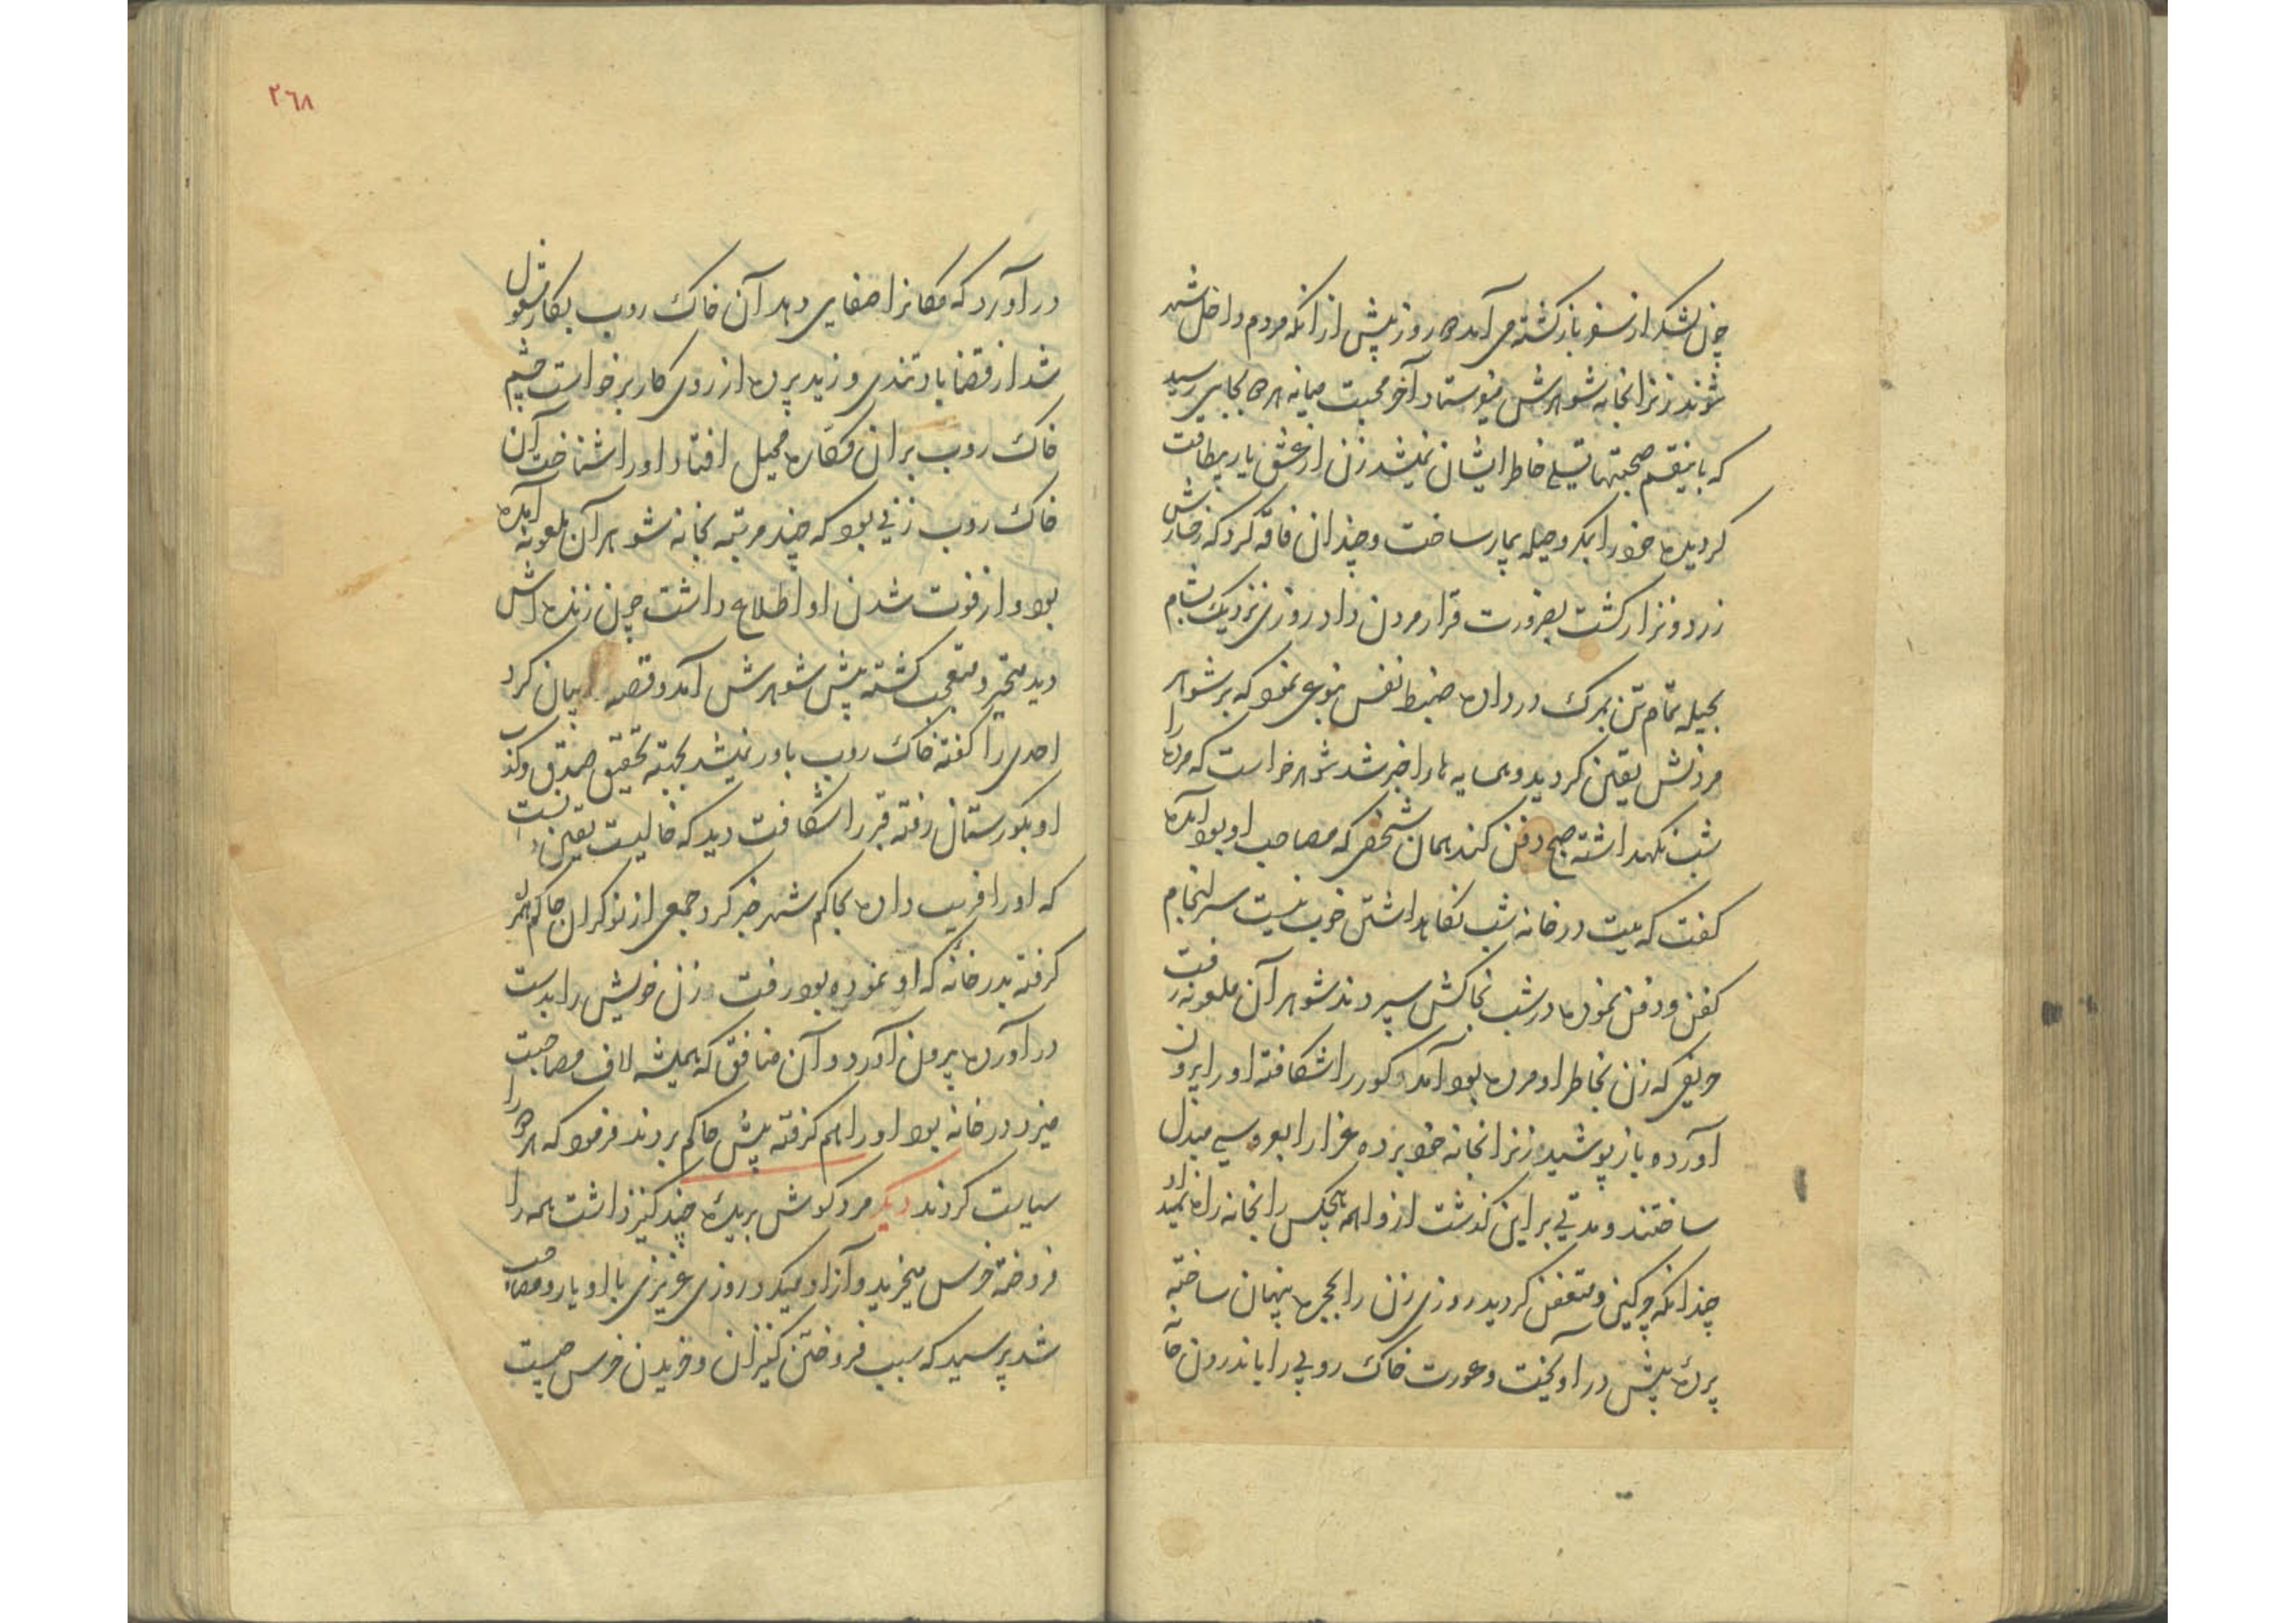 چون لشکر از سفر بازگشته می آمد ده روز پیش از انکه مردم داخل شهر
شوند زنرا بخانه شوهرش میفرستاد آخر محبت میانه هر دو بجایی رسید
که باینقسم صحبتها تسلی خاطر ایشان نمیشد زن از عشق یار بیطاقت
کردیده خود را بمکر وحیله بیمار ساخت و چندان فاقه کرد که رخسارش
زرد و نزار کشت بضرورت قرار مردن داد روزی نزدیک بشام
بحیله تمام تن بمرک در داده ضبط نفس بنوعی نمود که بر شوهر
مردنش یقین کردید و همسایه ها را خبر شد شوهر خواست که مرده را
شب نکهداشته صبح دفن کند همان شخص که مصاحب او بود آمده
کفت که میت در خانه شب نگاهداشتن خوب نیست سرانجام
کفن و دفن نموده در شب بخاکش سپردند شوهر آن ملعونه رفت
حریفی که زن بخاطر او مرده بود آمد و کور را شکافته او را بیرون
آورده و باز پوشید زنرا بخانه خود برده عزا را بعروسی مبدل
ساختند و مدتی بر این کذشت از واهمه هیچکس را بخانه راه نمیداد
چندانکه چرکین و متعفن کردید روزی زن را بحجره پنهان ساخته
پرده پیش در آویخت و عورت خاک روبی را باندرون خانه
٢٦٨
در آورد که مکانرا صفایی دهد آن خاک روب بکار مشغول
شد از قضا باد تندی وزید پرده از روی کار برخواست چشم
خاک روب بر ان مکاره محیل افتاد او را شناخت آن
خاک روب زنی بود که چند مرتبه بخانه شوهر آن ملعونه آمده
بود و از فوت شدن او اطلاع داشت چون زنده اش
دید متحیر و متعجب کشته پیش شوهرش آمد و قصه بیان کرد
احدی را کفته خاک روب باور نمیشد بجهته تحقیق صدق و کذب
او بکورستان رفته قبر را شکافت دید که خالیست یقین دانست
که او را فریب داده بحاکم شهر خبر کرد جمعی از نوکران حاکم همراه
کرفته بدر خانه که او نموده بود رفت زن خویش را بدست
در آورده بیرون آورد و آن منافق که همیشه لاف مصاحبت
میزد در خانه بود او را هم کرفته پیش حاکم بردند فرمود که هر دو را
سیاست کردند دیکر مرد کوش بریده چند کنیز داشت همه را
فروخته خرس میخرید و آزاد میکرد روزی عزیزی با او یار و مصاحب
شد پرسید که سبب فروختن کنیزان و خریدن خرس چیست